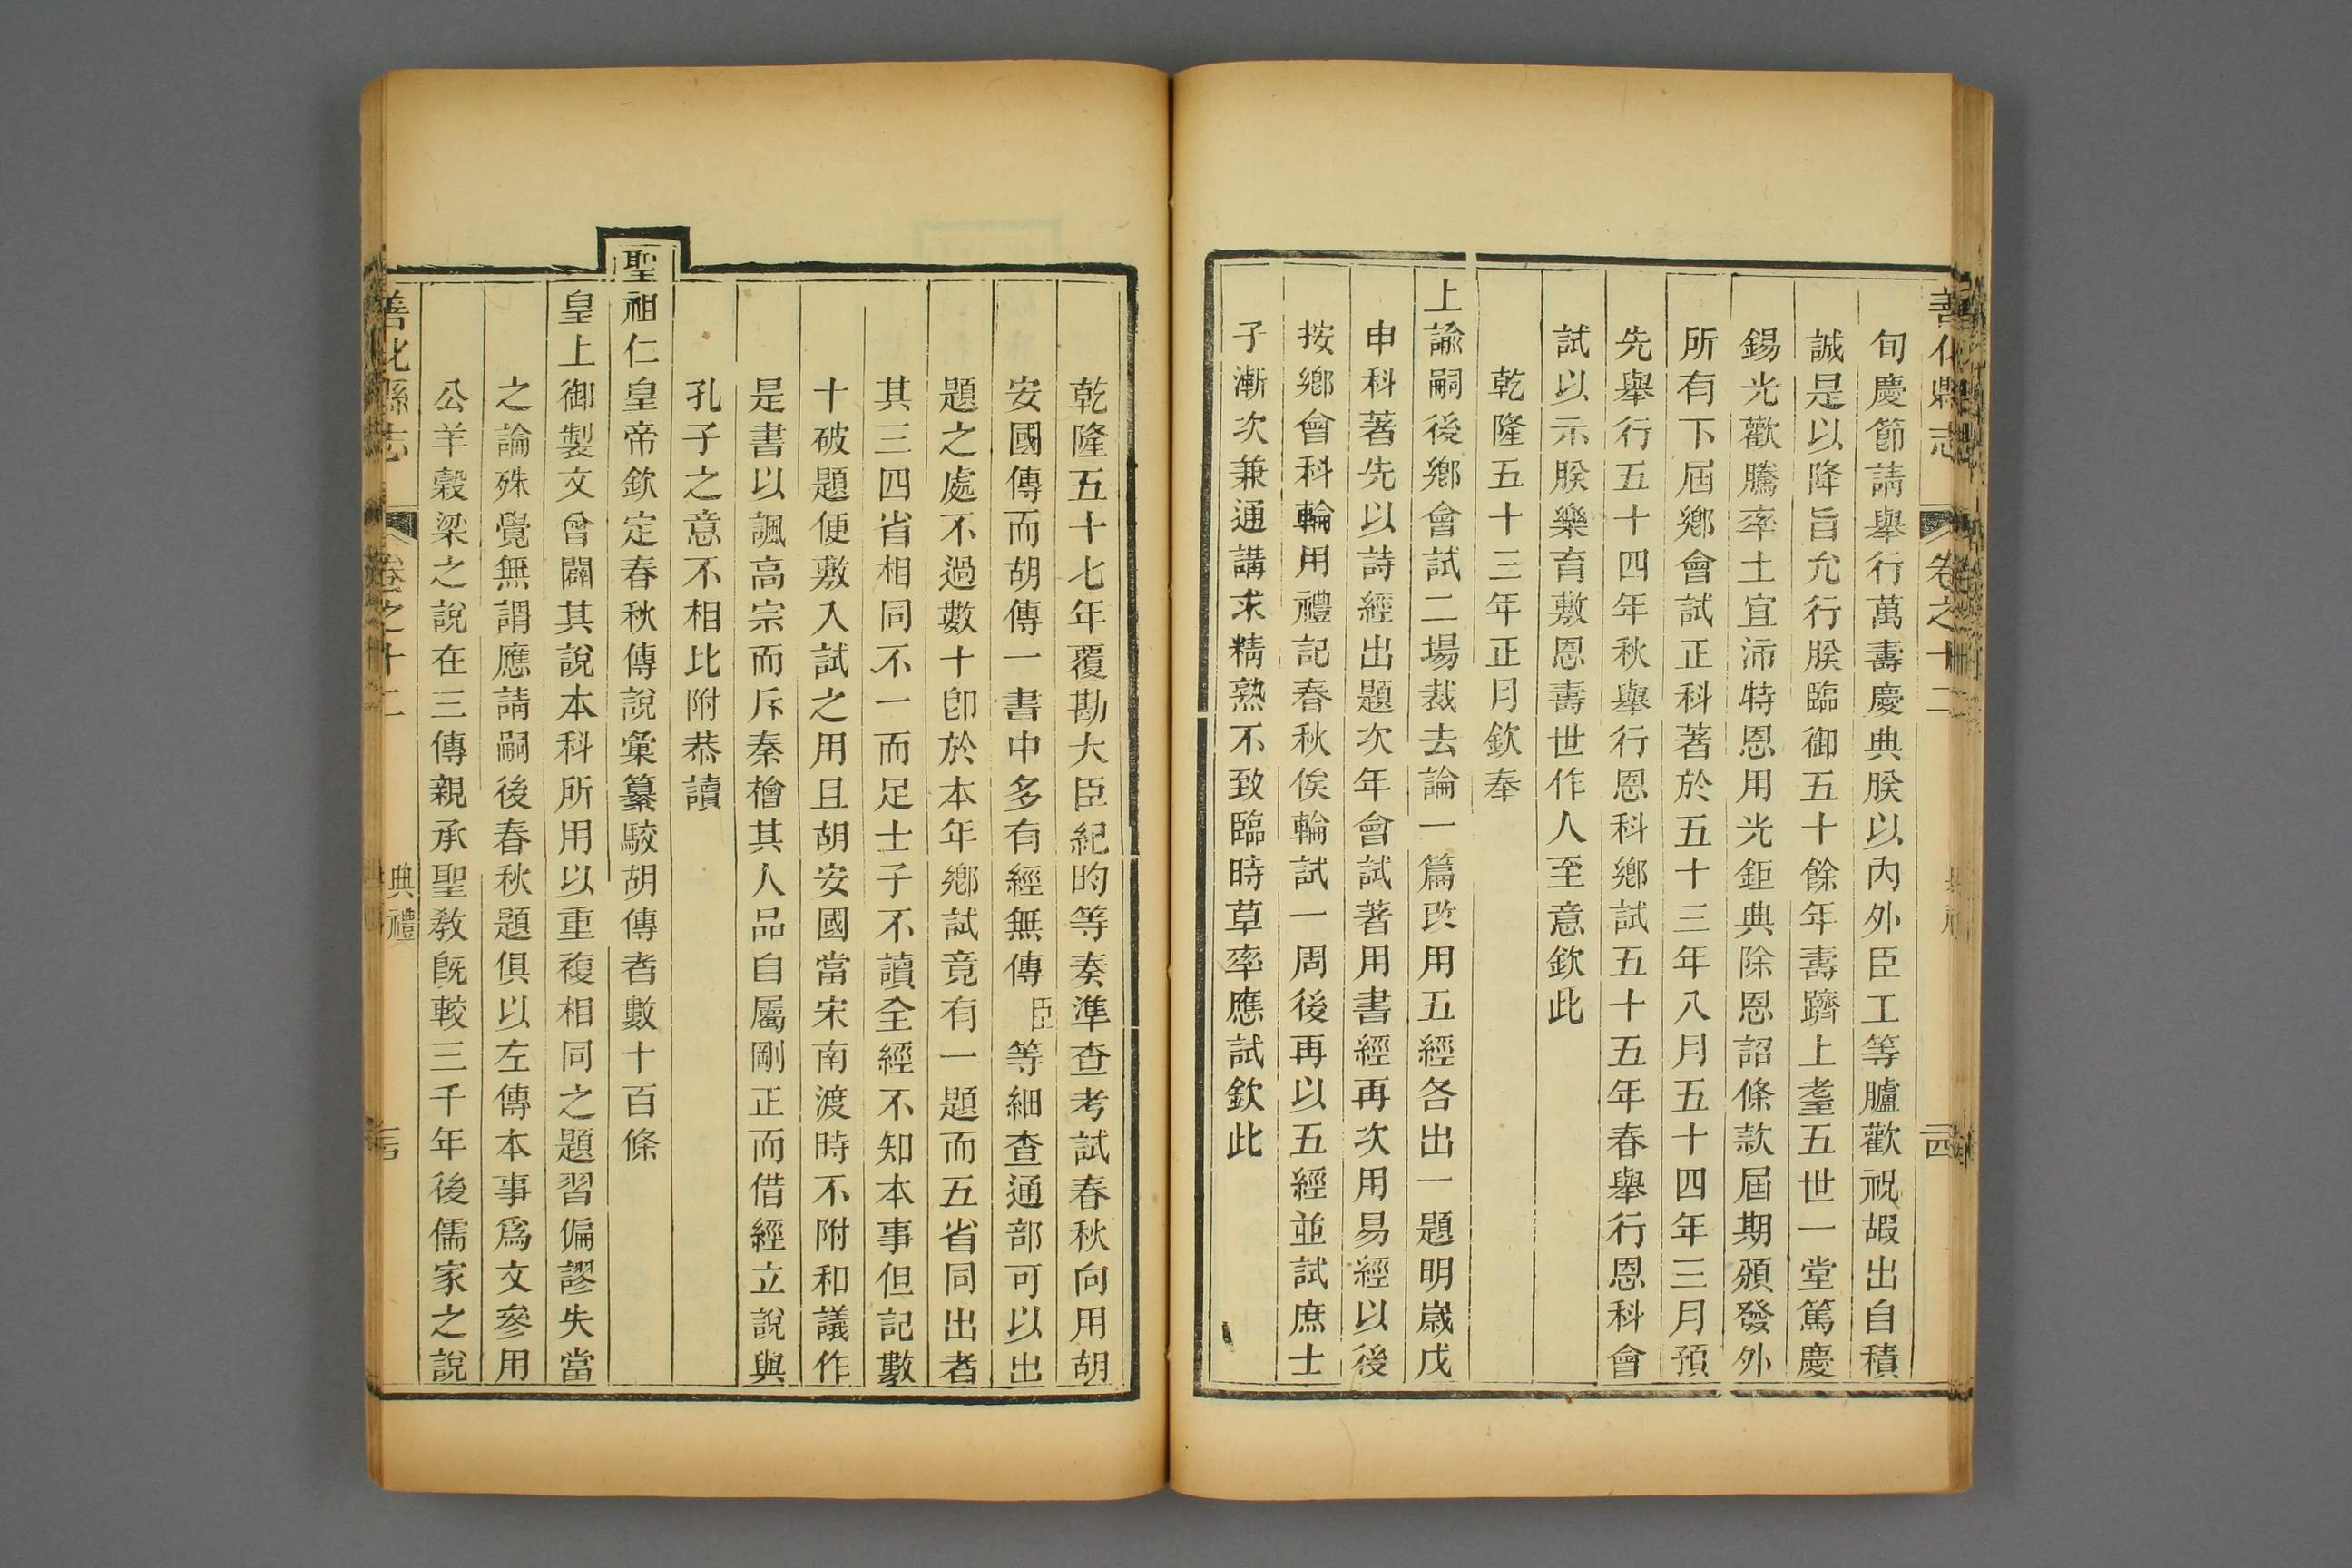 善化縣志
卷之十二
旬慶節請舉行萬壽慶典朕以內外臣工等臚歡祝嘏出自積
誠是以降旨允行朕臨御五十餘年壽躋上耋五世一堂篤慶
錫光歡騰率土宜沛特恩用光鉅典除恩詔條款屆期頒發外
所有下屆鄉會試正科著於五十三年八月五十四年三月預
先舉行五十四年秋舉行恩科鄉試五十五年春舉行恩科會
試以示朕樂育敷恩壽世作人至意欽此
乾隆五十三年正月欽奉
上諭嗣後鄉會試二場裁去論一篇改用五經各出一題明歲戊
申科著先以詩經出題次年會試著用書經再次用易經以後
按鄉會科輪用禮記春秋俟輪試一周後再以五經並試庶士
子漸次兼通講求精熟不致臨時草率應試欽此
乾隆五十七年覆勘大臣紀昀等奏準查考試春秋向用胡
安國傳而胡傳一書中多有經無傳臣等細查通部可以出
題之處不過數十卽於本年鄉試竟有一題而五省同出者
其三四省相同不一而足士子不讀全經不知本事但記數
十破題便敷入試之用且胡安國當宋南渡時不附和議作
是書以諷高宗而斥秦檜其人品自屬剛正而借經立說與
孔子之意不相比附恭讀
聖祖仁皇帝欽定春秋傳說彙纂駁胡傳者數十百條
皇上御製文曾闢其說本科所用以重複相同之題習偏謬失當
之論殊覺無謂應請嗣後春秋題俱以左傳本事爲文參用
公羊穀梁之說在三傳親承聖教旣較三千年後儒家之說
善化縣志
卷之十二
典禮